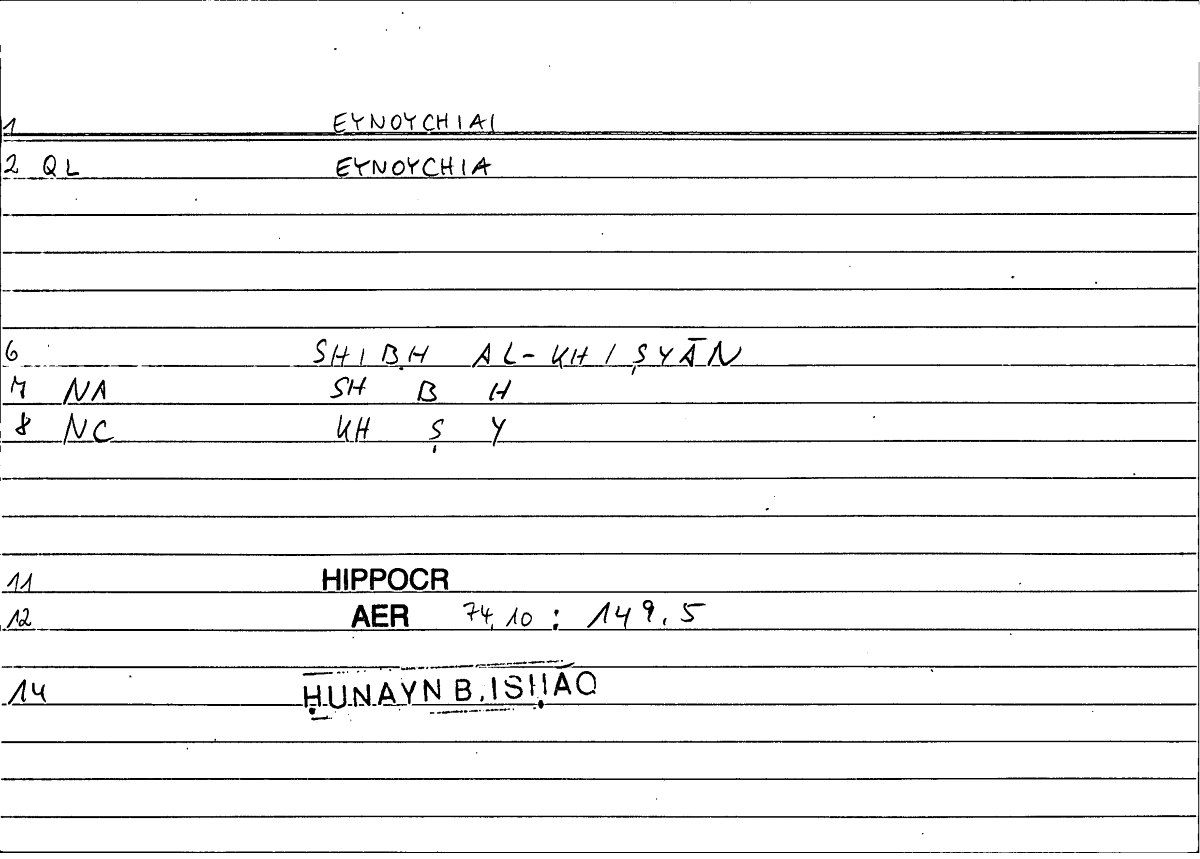 1 EYNOYCHIAI
2 QL EYNOYCHIA
6 SHIBH AL-KHIṢYĀN
7 NA SH B H
8 NC KH Ṣ Y
11 HIPPOCR
12 AER 74,10 : 149.5
14 ḤUNAYN B. ISḤĀQ